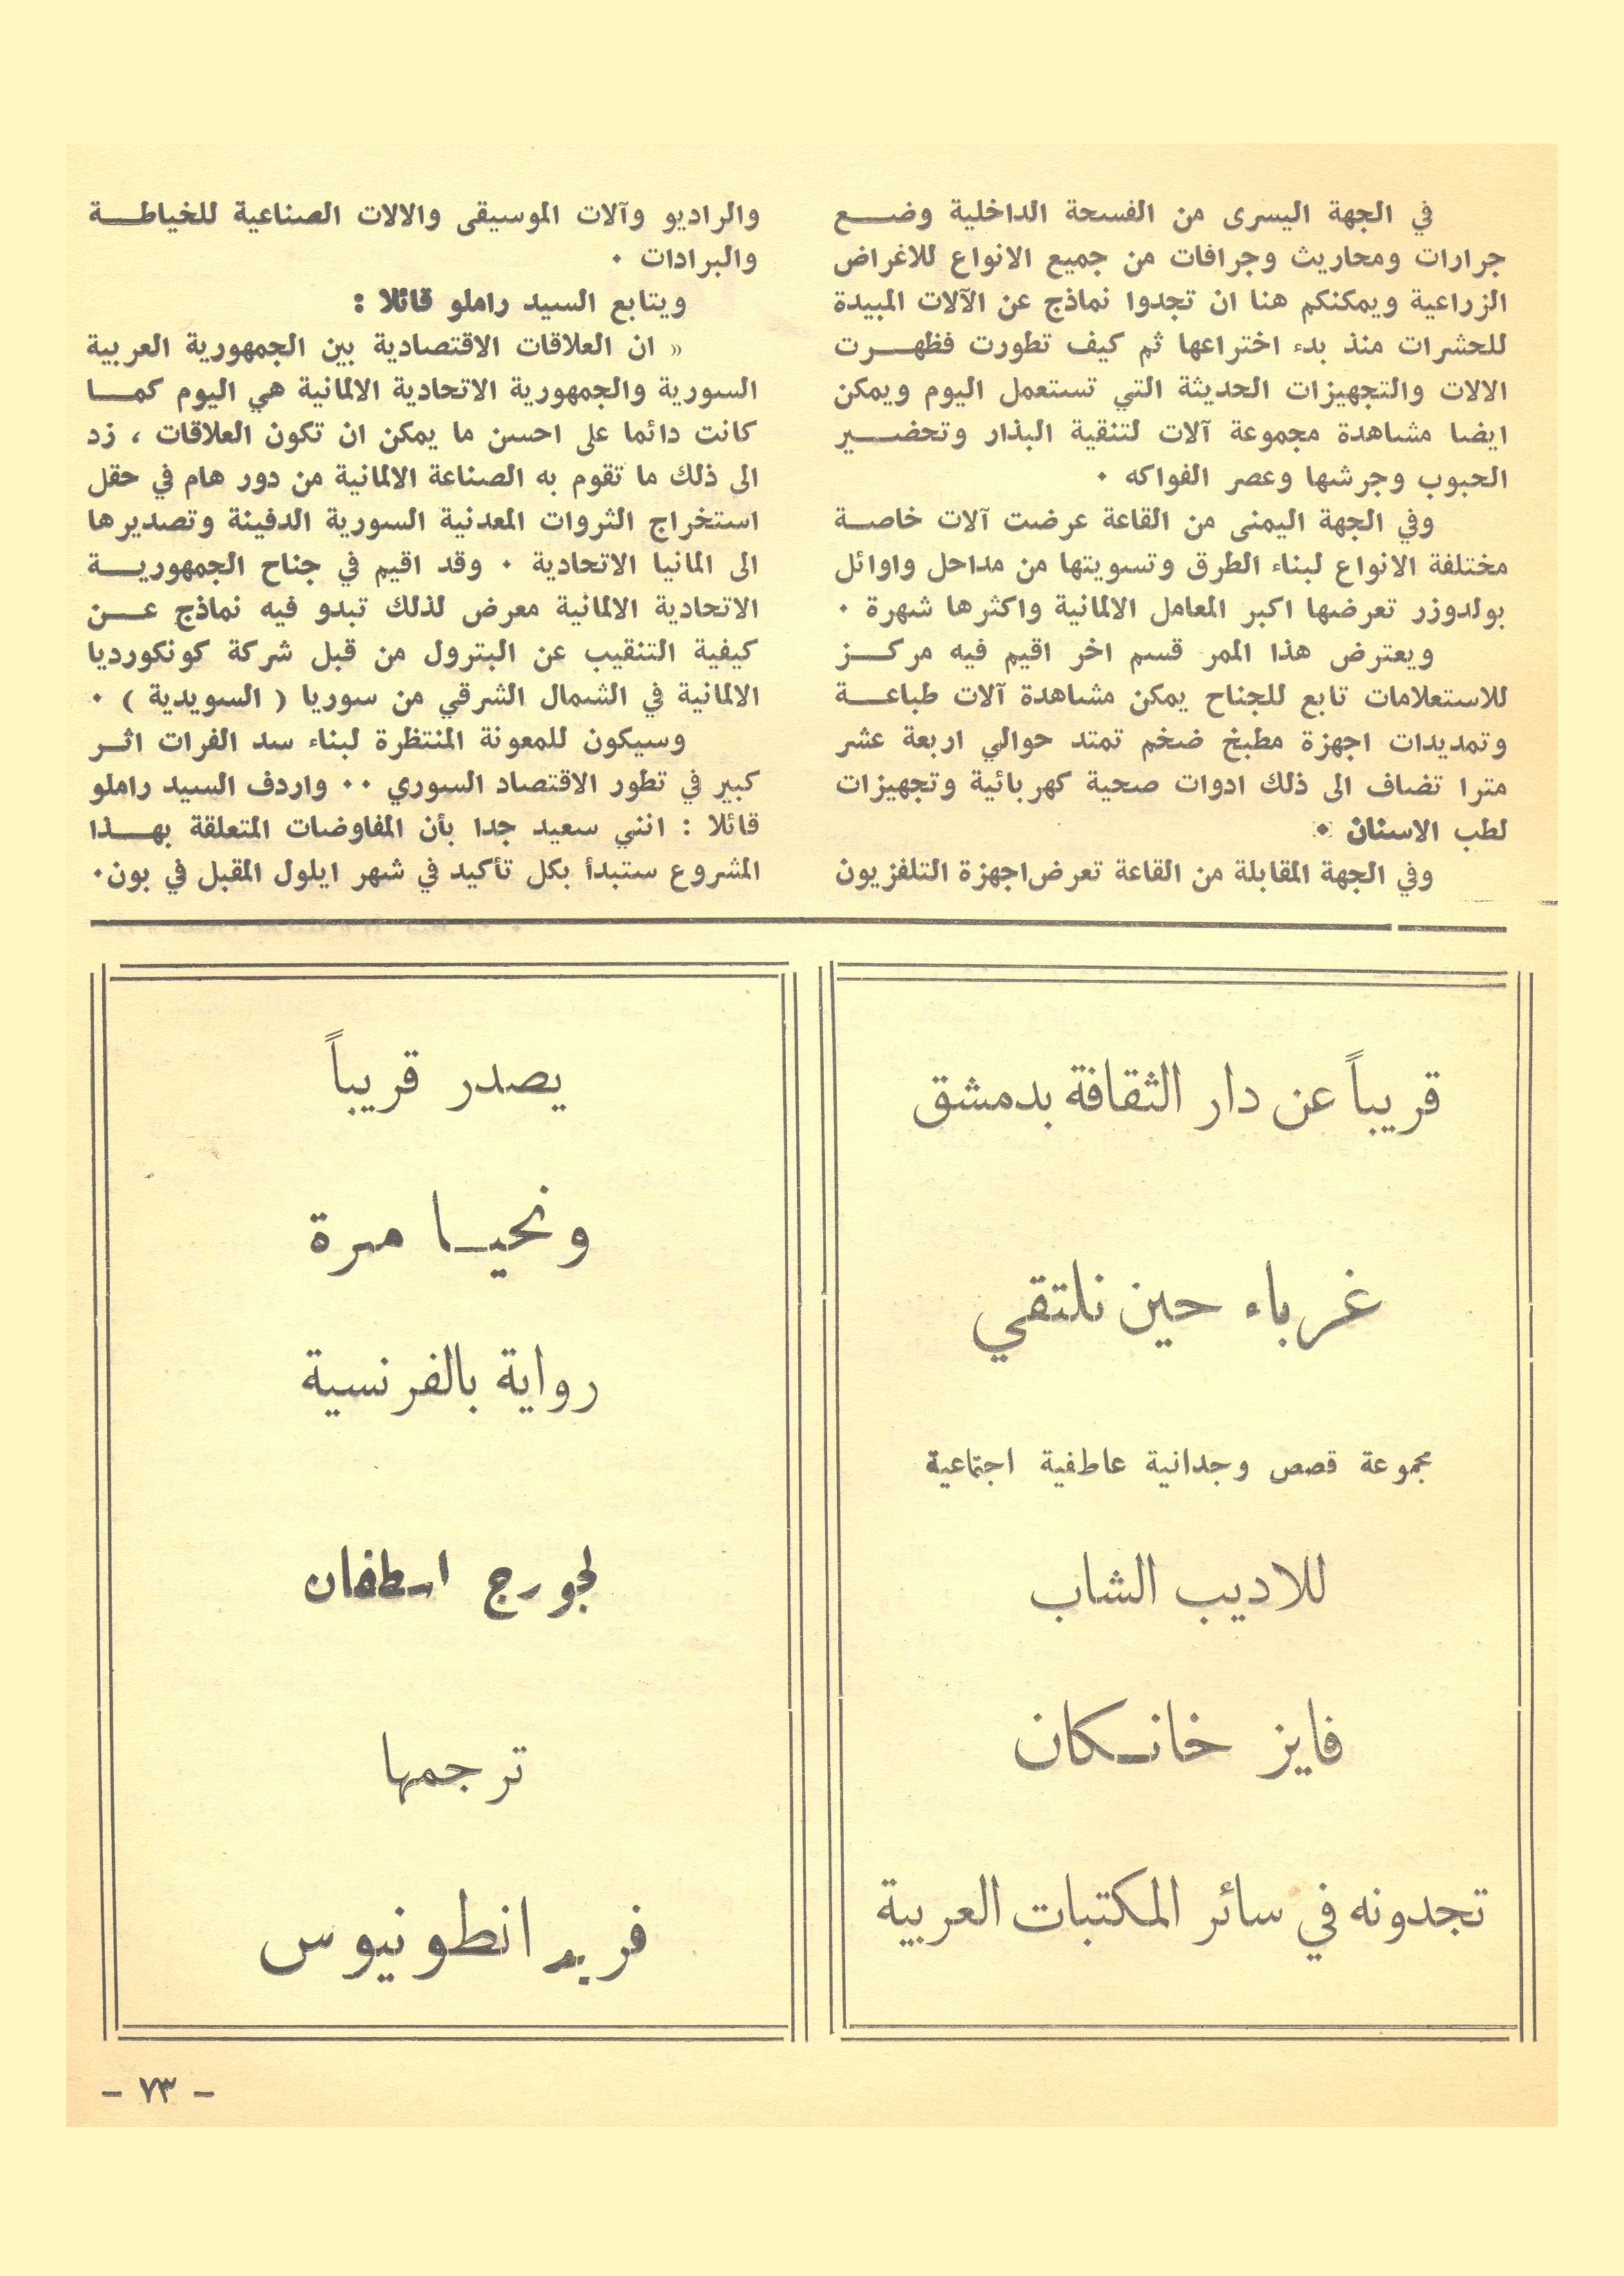 في الجهة اليسرى من الفسحة الداخلية وضع
جرارات ومحاريث وجرافات من جميع الانواع للاغراض
الزراعية ويمكنكم هنا ان تجدوا نماذج عن الآلات المبيدة
للحشرات منذ بدء اختراعها ثم كيف تطورت فظهرت
الالات والتجهيزات الحديثة التي تستعمل اليوم ويمكن
ايضا مشاهدة مجموعة آلات لتنقية البذار وتحضير
الحبوب وجرشها وعصر الفواكه ٠
وفي الجهة اليمنى من القاعة عرضت آلات خاصة
مختلفة الانواع لبناء الطرق وتسويتها من مداحل واوائل
بولدوزر تعرضها اكبر المعامل الالمانية واكثرها شهرة ٠
ويعترض هذا الممر قسم اخر اقيم فيه مركز
للاستعلامات تابع للجناح يمكن مشاهدة آلات طباعة
وتمديدات اجهزة مطبخ ضخم تمتد حوالي اربعة عشر
مترا تضاف الى ذلك ادوات صحية كهربائية وتجهيزات
لطب الاسنان ٠
وفي الجهة المقابلة من القاعة تعرض اجهزة التلفزيون
والراديو وآلات الموسيقى والالات الصناعية للخياطة
والبرادات ٠
ويتابع السيد راملو قائلا :
« ان العلاقات الاقتصادية بين الجمهورية العربية
السورية والجمهورية الاتحادية الالمانية هي اليوم كما
كانت دائما على احسن ما يمكن ان تكون العلاقات ، زد
الى ذلك ما تقوم به الصناعة الالمانية من دور هام في حقل
استخراج الثروات المعدنية السورية الدفينة وتصديرها
الى المانيا الاتحادية ٠ وقد اقيم في جناح الجمهورية
الاتحادية الالمانية معرض لذلك تبدو فيه نماذج عن
كيفية التنقيب عن البترول من قبل شركة كونكورديا
الالمانية في الشمال الشرقي من سوريا ( السويدية ) ٠
وسيكون للمعونة المنتظرة لبناء سد الفرات اثر
كبير في تطور الاقتصاد السوري ٠٠ واردف السيد راملو
قائلا : انني سعيد جدا بأن المفاوضات المتعلقة بهذا
المشروع ستبدأ بكل تأكيد في شهر ايلول المقبل في بون٠
قريباً عن دار الثقافة بدمشق
غرباء حين نلتقي
مجموعة قصص وجدانية عاطفية اجتماعية
للاديب الشاب
فايز خانكان
تجدونه في سائر المكتبات العربية
يصدر قريباً
ونحيا مرة
رواية بالفرنسية
لجورج اسطفان
ترجمها
فريد انطونيوس
- ٧٣ -